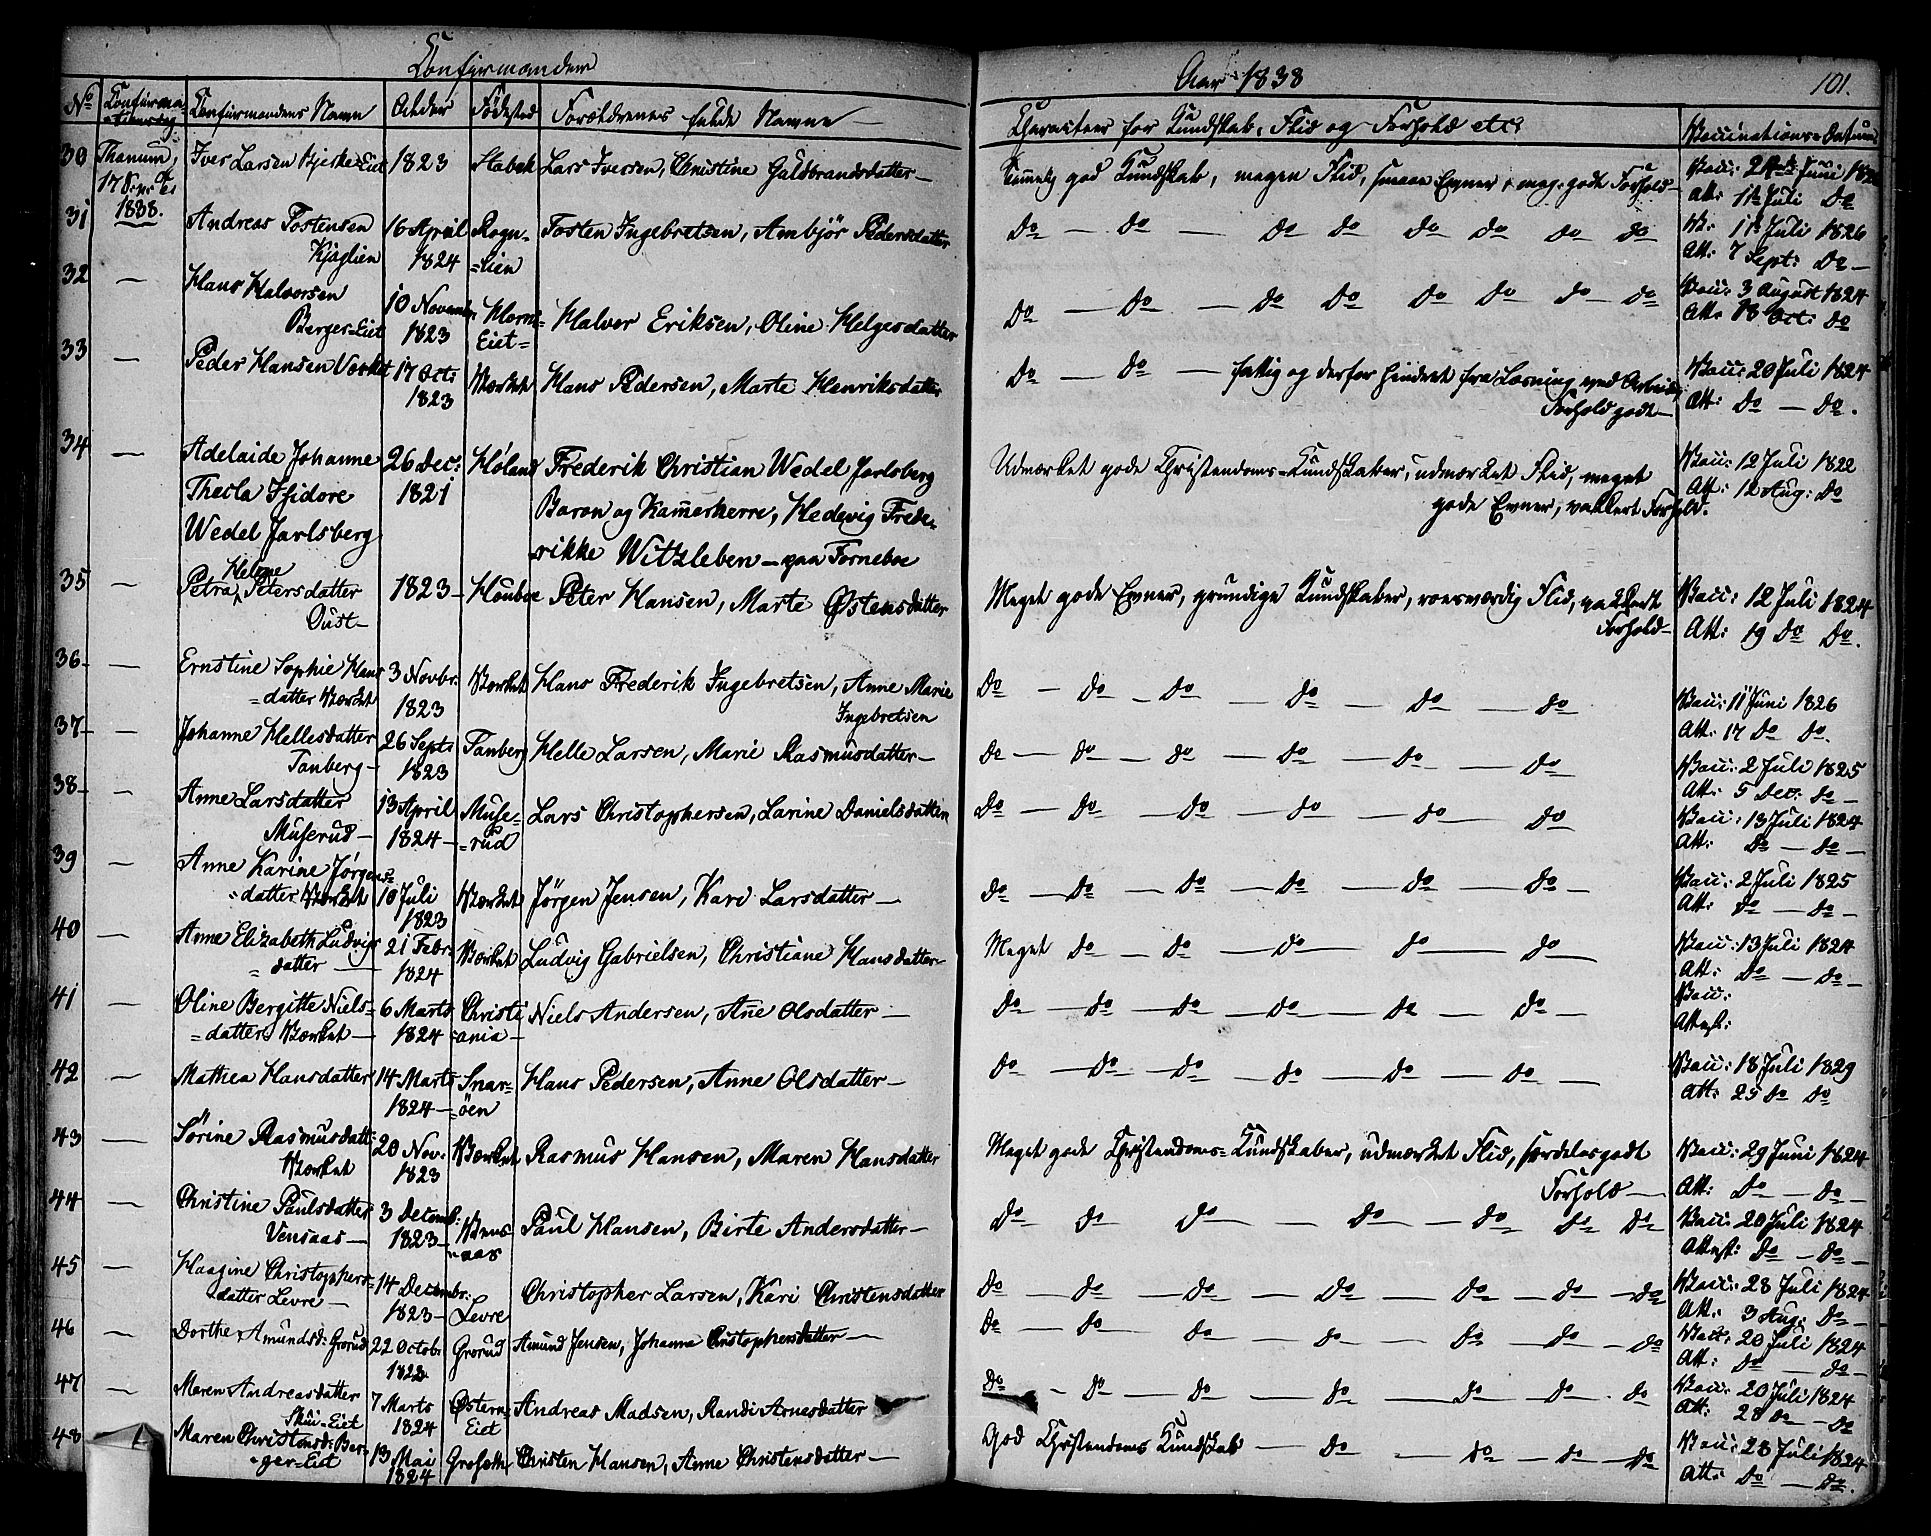 Confirmander
Aar 1838
101.
No Confirma- Confirmandens Navn Alder Fødested Forældrenes fulde Navne Characteer for Kundskab, Flid og Forhold etc: Vaccinations-Datum
30 Thanum, Iver Larsen Bjerke-Eiet 1823 Stabek Lars Iversen, Christine Guldbrandsdatter — god Kundskab, megen Flid, smaae Evner, meg: godt Forhold
17 1838. Att: 11te Juli Do
31 Andreas Tostensen Kjaglien 16 April 1824 Rogn-=lien Tosten Ingebretsen, Ambjør Pedersdatter Do — Do — Do Do Do Do Do Do Juli 1826
Att. 7 Sept: Do —
32 — Hans Halvorsen Berger-Eiet 10 Novembr: 1823 Horni-Eiet= Halvor Eriksen, Oline Helgesdatter Do — Do — Do Do Do Do Do — Do Vacc: 3 August 1824
Att. 18 Oct: Do
33 — Peder Hansen Værket 17 Oct: 1823 Værket Hans Pedersen, Marte Henriksdatter Do — Do — fattig og derfor hindret fra Læsning ved Arbeide, Forhold godt — Vacc: 20 Juli 1824
Att: Do — Do.
34 — Adelaide Johanne 26 Dec: Høland Frederik Christian Wedel Jarlsberg Udmærket gode Christendoms-Kundskaber, udmærket Flid, meget Vacc: 12 Juli 1822
Thecla Isidore 1821 Baron og Kammerherre, Hedevig Frede- gode Evner, vakkert Forhold. Att: 12 Aug: Do
Wedel Jarlsberg rikke Witzleben — paa Forneboe
35 — Petra Helene Petersdatter Oust — 1823 — Houboe Peter Hansen, Marte Østensdatter Meget gode Evner, grundige Kundskaber, roesværdig Flid, vakkert Forhold — Vacc: 12 Juli 1824
Att: 19 Do Do.
36 — Ernstine Sophie Hans =datter Værket 3 Novbr: 1823 Værket Hans Frederik Ingebretsen, Anne Marie Ingebretsen Do — Do — Do — Do — Do — Do Vacc: 11 Juni 1826
Att: 17 Do Do.
37 — Johanne Hellesdatter Tanberg — 26 Sept: 1823 Tanberg Helle Larsen, Marie Rasmusdatter — Do — Do — Do — Do — Do — Do Vacc: 2 Juli 1825
Att: 5 Dec: Do —
38 — Anne Larsdatter Muserud — 13 April 1824 — Muse-=rud Lars Christophersen, Larine Danielsdatter Do — Do — Do — Do — Do — Do Vacc: 13 Juli 1824
Att: Do — Do —
39 — Anne Karine Jørgens-=datter Værket 10 Juli 1823 Værket Jørgen Jensen, Kari Larsdatter — Do — Do — Do — Do — Do — Do — Vacc: 2 Juli 1825
Att: Do — Do —
40 — Anne Elizabeth Ludvigs =datter — 21 Febr: 1824 Værket Ludvig Gabrielsen, Christiane Hansdatter Meget Do — Do — Do — Do — Do Vacc: 13 Juli 1824
Att: Do — Do —
41 — Oline Bergitte Niels-=datter Værket — 6 Marts 1824 Christi=ania — Niels Andersen, Ane Olsdatter — Do — Do — Do — Do — Do — Do — Vacc:
Attest:
42 — Mathea Hansdatter 14 Marts 1824 — Snar-=öen Hans Pedersen, Anne Olsdatter — Do — Do — Do — Do — Do — Do — Vacc: 18 Juli 1829
Att: 25 Do Do
43 — Sørine Rasmusdatt: Værket 20 Nov: 1823 Værket Rasmus Hansen, Maren Hansdatter Meget gode Christendoms-Kundskaber, udmærket Flid, særdeles godt Forhold — Vacc: 29 Juni 1824
Att: Do — Do —
44 — Christine Paulsdatter Vensaas — 3 Decemb: 1823 — Vens=aas Paul Hansen, Birte Andersdatter — Do Do Do — Do — Do Do Do Vacc: 20 Juli 1824
Attest: Do — Do —
45 — Haagine Christophers-datter Levre — 14 Decembr: 1823 — Levre Christopher Larsen, Kari Christensdatter Do — Do — Do — Do — Do — Do — Do Vacc: 28 Juli 1824
Att: 3 Aug: Do —
46 — Dorthe Amundsd: Grorud 22 Octobr 1823 Grorud Amund Jensen, Johanne Christophersdatter — Do — Do — Do — Do — Do — Do — Do Vacc: 20 Juli 1824
Att: Do — Do —
47 — Maren Andreasdatter Skui-Eiet 7 Marts 1824 Østern-Eiet Andreas Madsen, Randi Arnesdatter Do — Do — Do — Do — Do — Do — Do Vacc: 20 Juli 1824
Att: 28 Do — Do
48 Maren Christensd: Ber-=ger-Eiet 13 Mai 1824 Christen Hansen, Anne Christensdatter — God Christendoms Kundskab — Do — Do — Do — Do Vacc: 28 Juli 1824
Att: Do — Do.